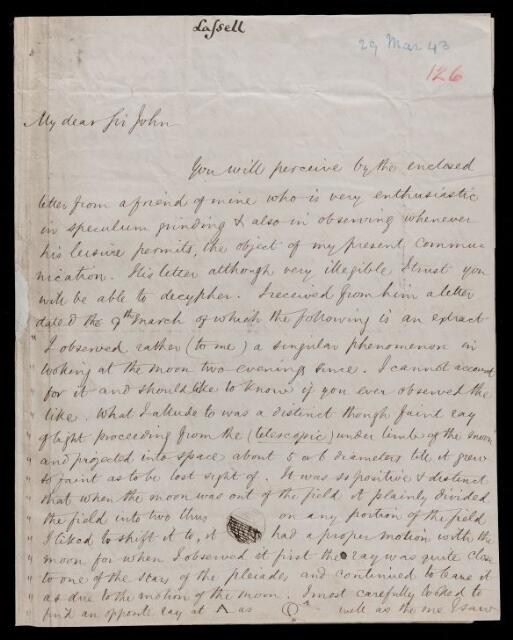 Lassell
29 Mar 43
126
My dear Sir John
You will perceive by the enclosed
letter from a friend of mine who is very enthusiastic
in speculum grinding & also in observing whenever
his leisure permits, the object of my present commu-
nication. His letter although very illegible I trust you
will be able to decypher. I received from him a letter
dated the 9th March of which the following is an extract
"I observed rather (to me) a singular phenomenon in
" looking at the moon two evenings since. I cannot account
" for it and should like to know if you ever observed the
" like. What I allude to was a distinct though faint ray
" of light proceeding from the (telescopic) under limb of the moon
" and projected into space about 5 or 6 diameters till it grew
" so faint as to be lost sight of. It was so positive & distinct
" that when the moon was out of the field it plainly divided
" the field into two thus on any portion of the field
" I liked to shift it to, it had a proper motion with the
" moon for when I observed it first the ray was quite close
" to one of the stars of the pleiades and continued to leave it
" as due to the motion of the moon. I most carefully looked to
" find an opposite ray at as well as the one I saw